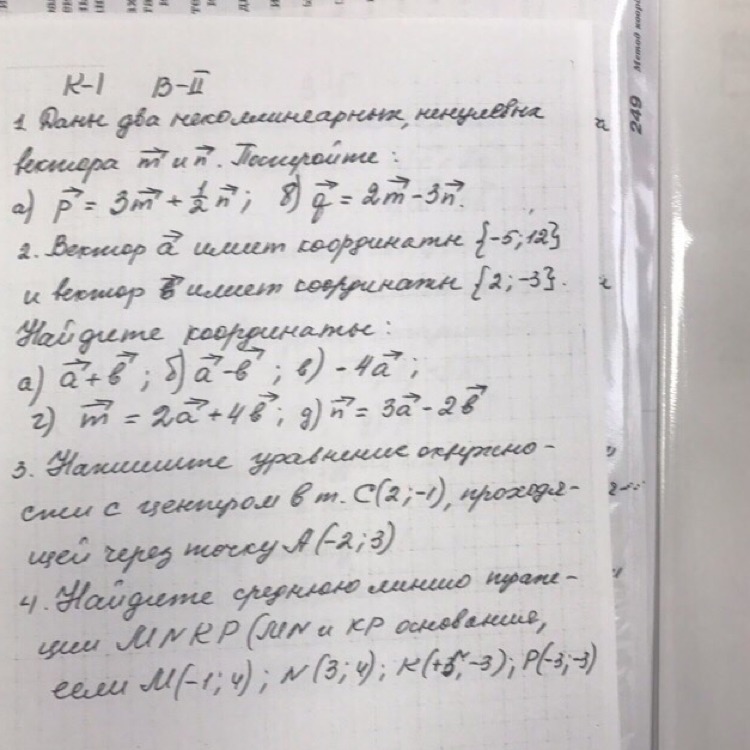 К-I В-II
1. Даны два неколлинеарных, ненулевых
вектора m⃗ и n⃗. Постройте:
а) p⃗ = 3m⃗ + 1/2 n⃗; б) q⃗ = 2m⃗ - 3n⃗.
2. Вектор a⃗ имеет координаты {-5; 12}
и вектор в⃗ имеет координаты {2; -3}.
Найдите координаты:
а) a⃗ + в⃗; б) a⃗ - в⃗; в) - 4a⃗;
г) m⃗ = 2a⃗ + 4в⃗; д) n⃗ = 3a⃗ - 2в⃗
3. Напишите уравнение окружно-
сти с центром в т. С(2; -1), проходя-
щей через точку А(-2; 3)
4. Найдите среднюю линию трапе-
ции MNKP (MN и KP основания,
если M(-1; 4); N(3; 4); K(+5; -3); P(-3; -3)
249